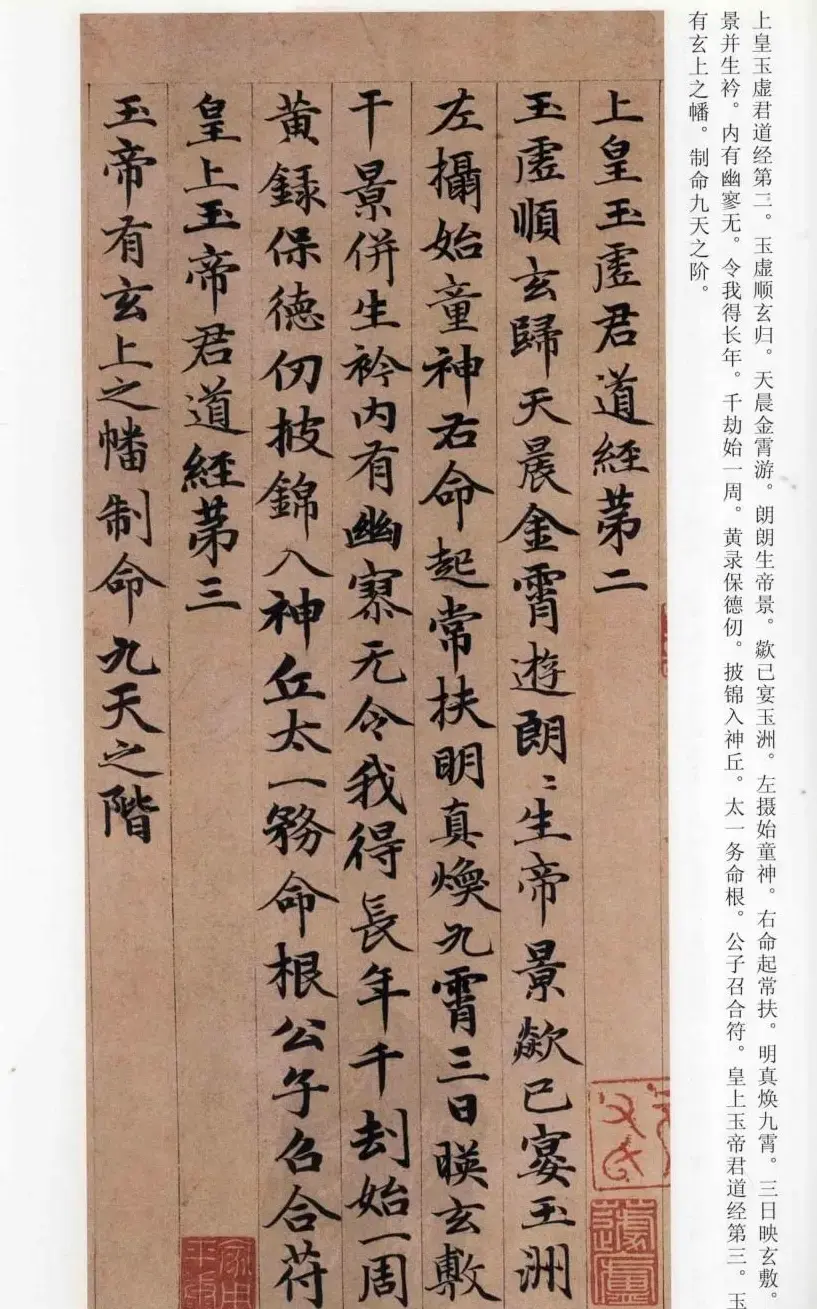 上皇玉虚君道经第二。玉虚顺玄归。天晨金霄游。朗朗生帝景。歘已宴玉洲。左摄始童神。右命起常扶。明真焕九霄。三日映玄敷。
景并生衿。内有幽寥无。令我得长年。千劫始一周。黄录保德仞。披锦入神丘。太一务命根。公子召合符。皇上玉帝君道经第三。玉
有玄上之幡。制命九天之阶。
上皇玉虛君道經苐二
玉虛順玄歸天晨金霄遊朗〻生帝景歘已宴玉洲
左攝始童神右命起常扶明真煥九霄三日暎玄敷
干景併生衿内有幽寥无令我得長年千刼始一周
黄録保德仞披錦入神丘太一務命根公子召合符
皇上玉帝君道經苐三
玉帝有玄上之幡制命九天之階